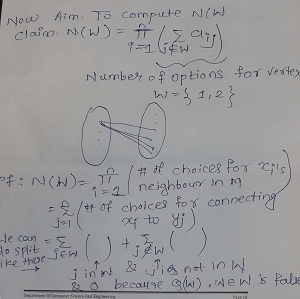 Now Aim: To compute N(W
claim: N(W) = n π i=1 ( Σ j∉W aij )
Number of options for vertex
W = {1, 2}
Pf: N(W) = n π i=1 ( # of choices for xi's neighbour in M
= n Σ j=1 ( # of choices for connecting xi to yj )
We can do split like here → = Σ j∈W ( ) + Σ j∉W ( )
j in W & j is not in W
& 0 because Q(W), we W is false
Department Of Computer Science And Engineering Page 10